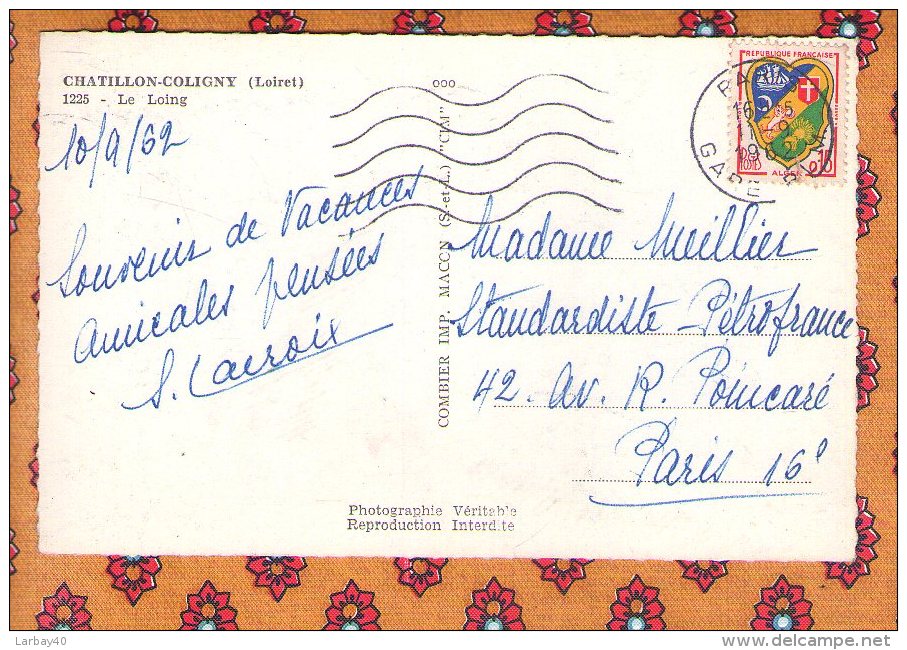 CHATILLON-COLIGNY (Loiret)
1225 - Le Loing
10/9/62
Souvenir de Vacances
amicales pensées
S. Lacroix
COMBIER IMP. MACON (S.-et-L.) "CIM"
RÉPUBLIQUE FRANÇAISE
POSTES
ALGER
0,15
PARIS
11 -9
1962
GARE
Madame Meillier
Standardiste Pétrofrance
42. Av. R. Poincaré
Paris 16e
Photographie Véritable
Reproduction Interdite
Larbay40
www.delcampe.net